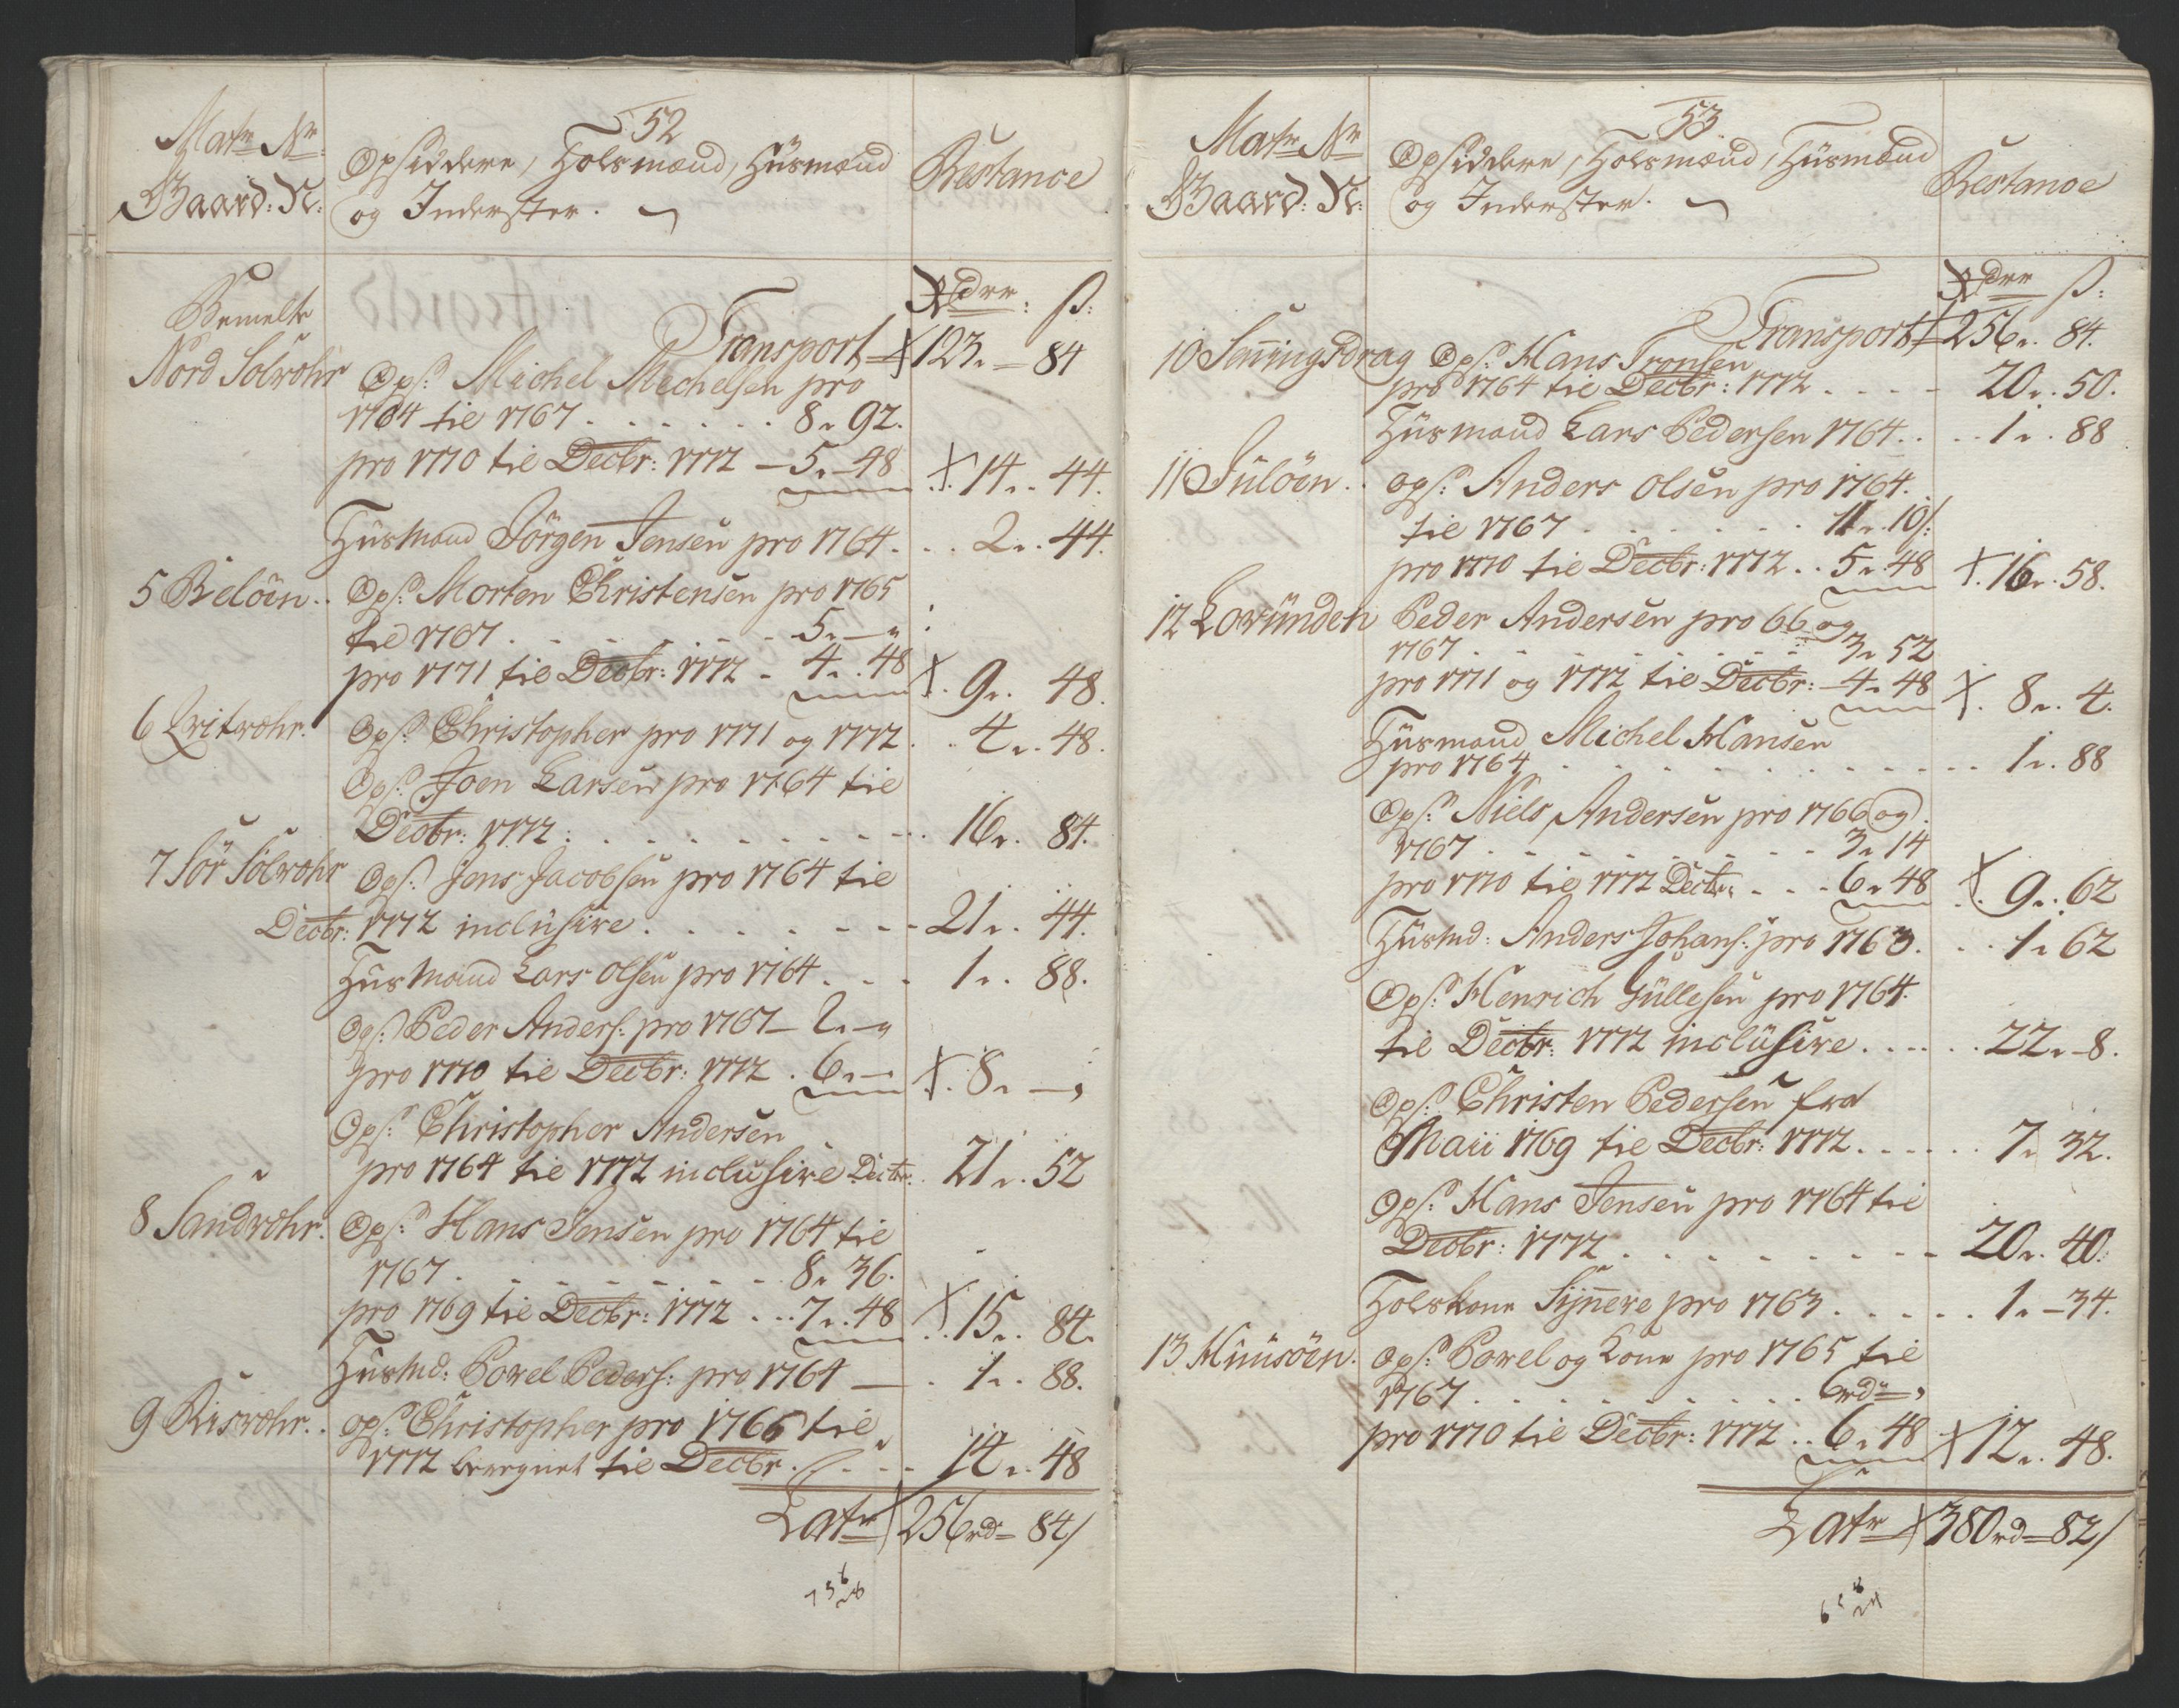 52
Matr: Nr:
Gaard: N:
Opsiddere, Folsmænd, Husmænd
og Inderster.
Restance
Rdlr: ß:
Bemelte
Nord Solvohr
Transport 123. 84
Ops: Michel Michelsen pro
1764 til 1767 . . . . . . 8. 92.
pro 1770 til Decbr: 1772 — 5. 48 14. 44.
Husmand Jörgen Jensen pro 1764 . . . 2. 44.
5 Beløen . . Ops: Morten Christensen pro 1765
til 1767 . . . . . . . 5. —
pro 1771 til Decbr: 1772 - 4. 48 9. 48.
6 Qvitvohr. Ops: Christopher pro 1771 og 1772 . . . 4. 48.
Ops: Joen Larsen pro 1764 til
Decbr: 1772 . . . . . . . . . 16. 84.
7 Sör Solvohr Ops: Jens Jacobsen pro 1764 til
Decbr: 1772 inclusive . . . . . . . 21. 44.
Husmand Lars Olsen pro 1764 . . . 1. 88.
Ops: Peder Anders: pro 1767 — 2. —
pro 1770 til Decbr: 1772 . 6. — 8. —
Ops: Christopher Andersen
pro 1764 til 1772 inclusive Decbr: . 21. 52
8 Sandvohr. Ops: Hans Jensen pro 1764 til
1767 . . . . . . . . 8. 36.
pro 1769 til Decbr: 1772 . . . 7. 48 15. 84.
Husmd: Povel Peders: pro 1764 — . 1. 88.
9 Risvohr. . Ops: Christopher pro 1766 til
1772 beregnet til Decbr . . . . 14. 48
Latr 256rd 84/
53.
Matr: Nr
Gaard: N:
Opsiddere, Folsmænd, Husmænd
og Inderster.
Restance
Rdlr ß:
Transport 256. 84.
10 Sanningsdrag Ops: Hans Tronsen
pro 1764 til Decbr: 1772 . . . . 20. 50.
Husmand Lars Pedersen 1764 . . . . 1. 88
11 Suløen . . Ops: Anders Olsen pro 1764.
til 1767 . . . . . . . 11. 10/:
pro 1770 til Decbr: 1772 . . 5. 48 16. 58.
12 Lovunden Peder Andersen pro 66 og
1767 . . . . . . . . . 3. 52
pro 1771 og 1772 til Decbr: — 4. 48 8. 4.
Husmand Michel Hansen
pro 1764 . . . . . . . . . . . 1. 88
Ops: Niels Andersen pro 1766 og
1767 . . . . . . . . . 3. 14
pro 1770 til 1772 Decbr: . . . 6. 48 9. 62
Husmd: Anders Johans: pro 1763. . . 1. 62
Ops: Henrich Güllesen pro 1764.
til Decbr: 1772 inclusive . . . . . . 22. 8.
Ops: Christen Pedersen fra
Maii 1769 til Decbr: 1772 . . . . . . 7. 32.
Ops: Hans Jensen pro 1764 til
Decbr: 1772 . . . . . . . . . 20. 40.
Folskone Synneve pro 1763 . . . . . . 1. 34.
13 Huusøen. Ops: Povel og Kone pro 1765 til
1767 . . . . . . . . . 6rd —
pro 1770 til Decbr: 1772 . . 6. 48 12. 48.
Latr 380rd 82/